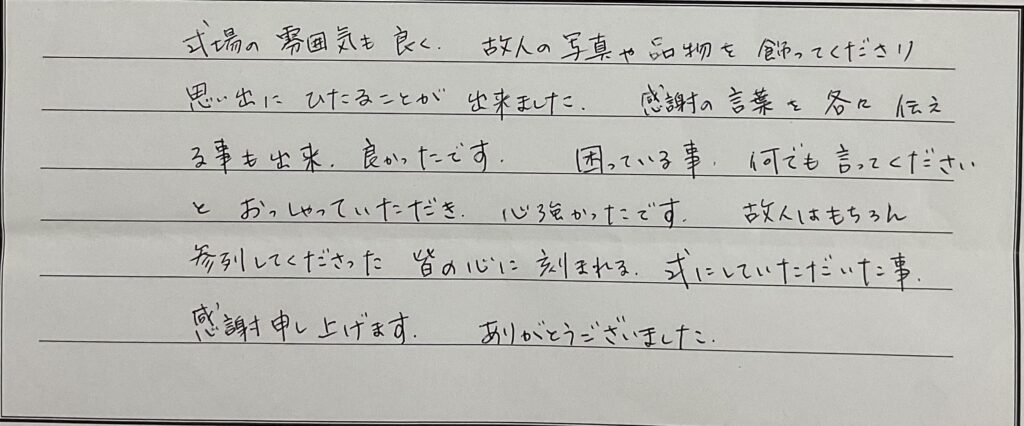 式場の雰囲気も良く、故人の写真や品物を飾ってくださり
思い出にひたることが出来ました。感謝の言葉を各々伝え
る事も出来、良かったです。困っている事、何でも言ってください
とおっしゃっていただき、心強かったです。故人はもちろん
参列してくださった皆の心に刻まれる、式にしていただいた事、
感謝申し上げます。ありがとうございました。